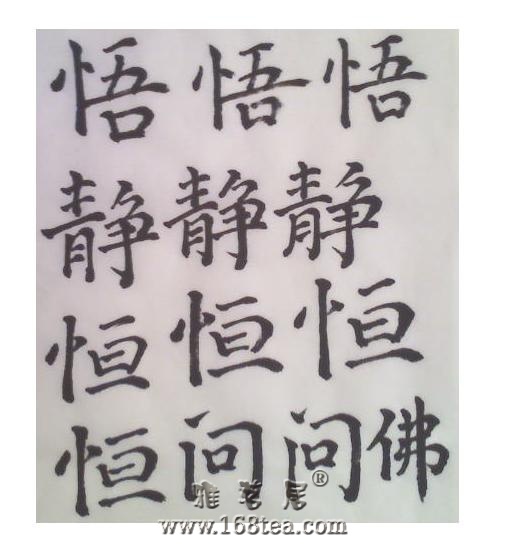 悟悟悟
静静静
恒恒恒
恒问问佛
雅茗居®
www.168tea.com